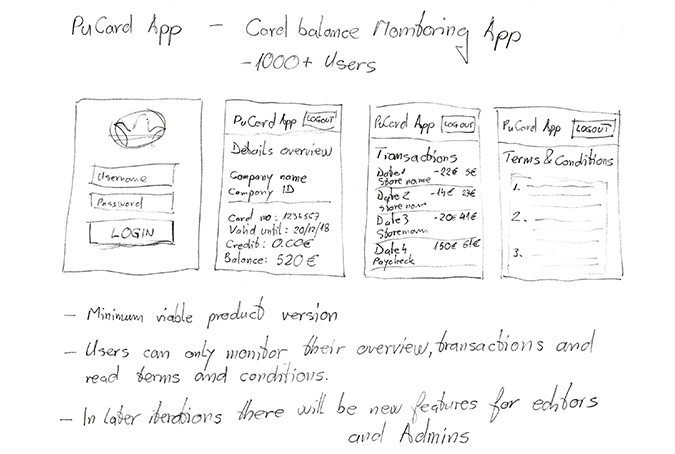 PuCard App - Card balance Monitoring App
- 1000+ Users
Username
Password
LOGIN
PuCard App LOGOUT
Details overview
Company name
Company ID
Card no: 1234567
Valid until: 20/12/18
Credit: 0.00€
Balance: 520€
PuCard App LOGOUT
Transactions
Date1 -22€ 5€
Store name
Date2 -14€ 27€
Store nam
Date3 -20€ 41€
Storenam
Date4 150€ 61€
Paycheck
PuCard App LOGOUT
Terms & Conditions
1.
2.
3.
- Minimum viable product version
- Users can only monitor their overview, transactions and
read terms and conditions.
- In later iterations there will be new features for editors
and Admins